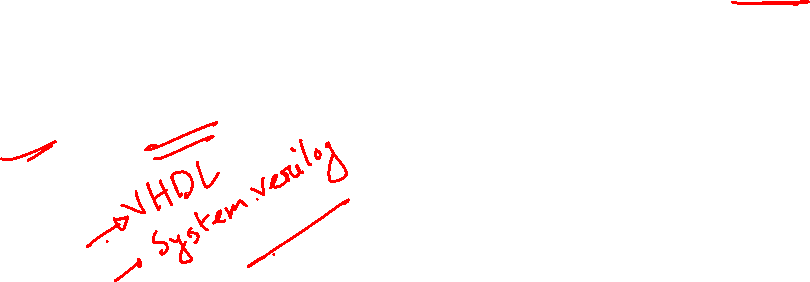 → VHDL
→ System verilog